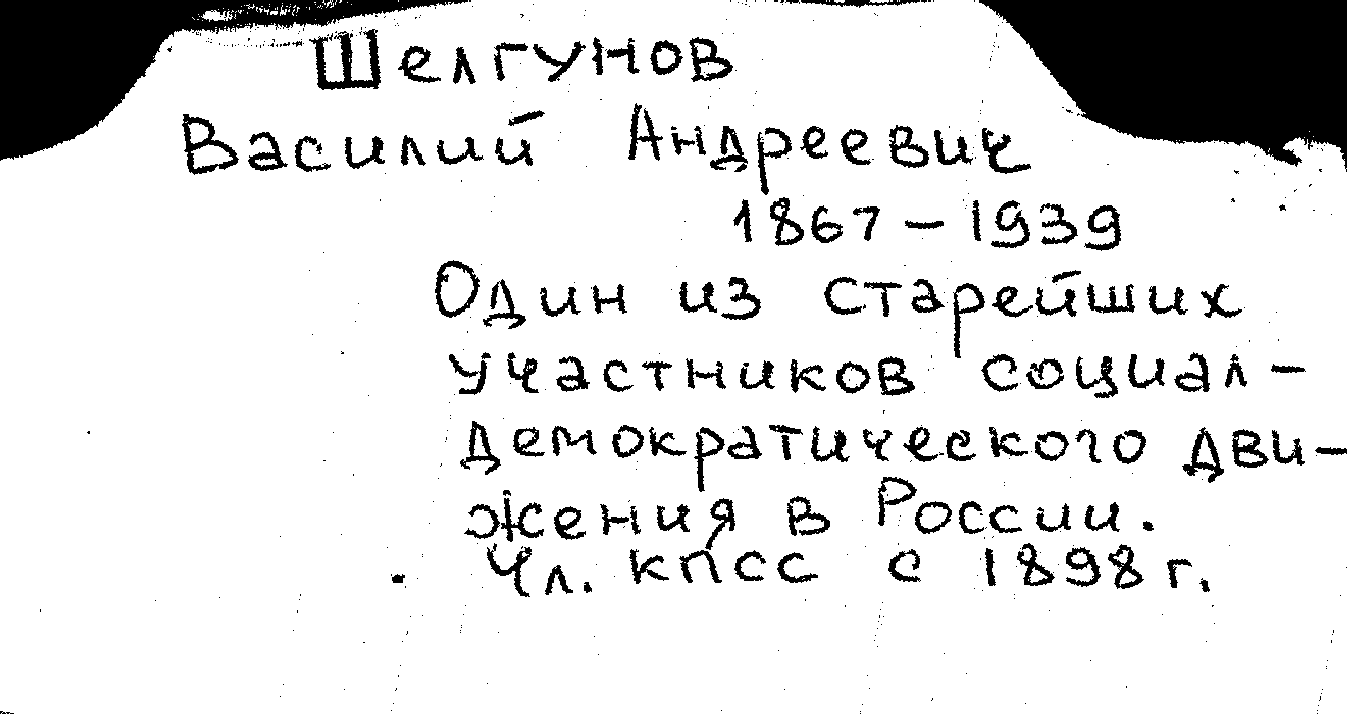 Шелгунов
Василий Андреевич
1867-1939
Один из старейших
участников социал-
демократического дви-
жения в России.
Чл. КПСС с 1898 г.